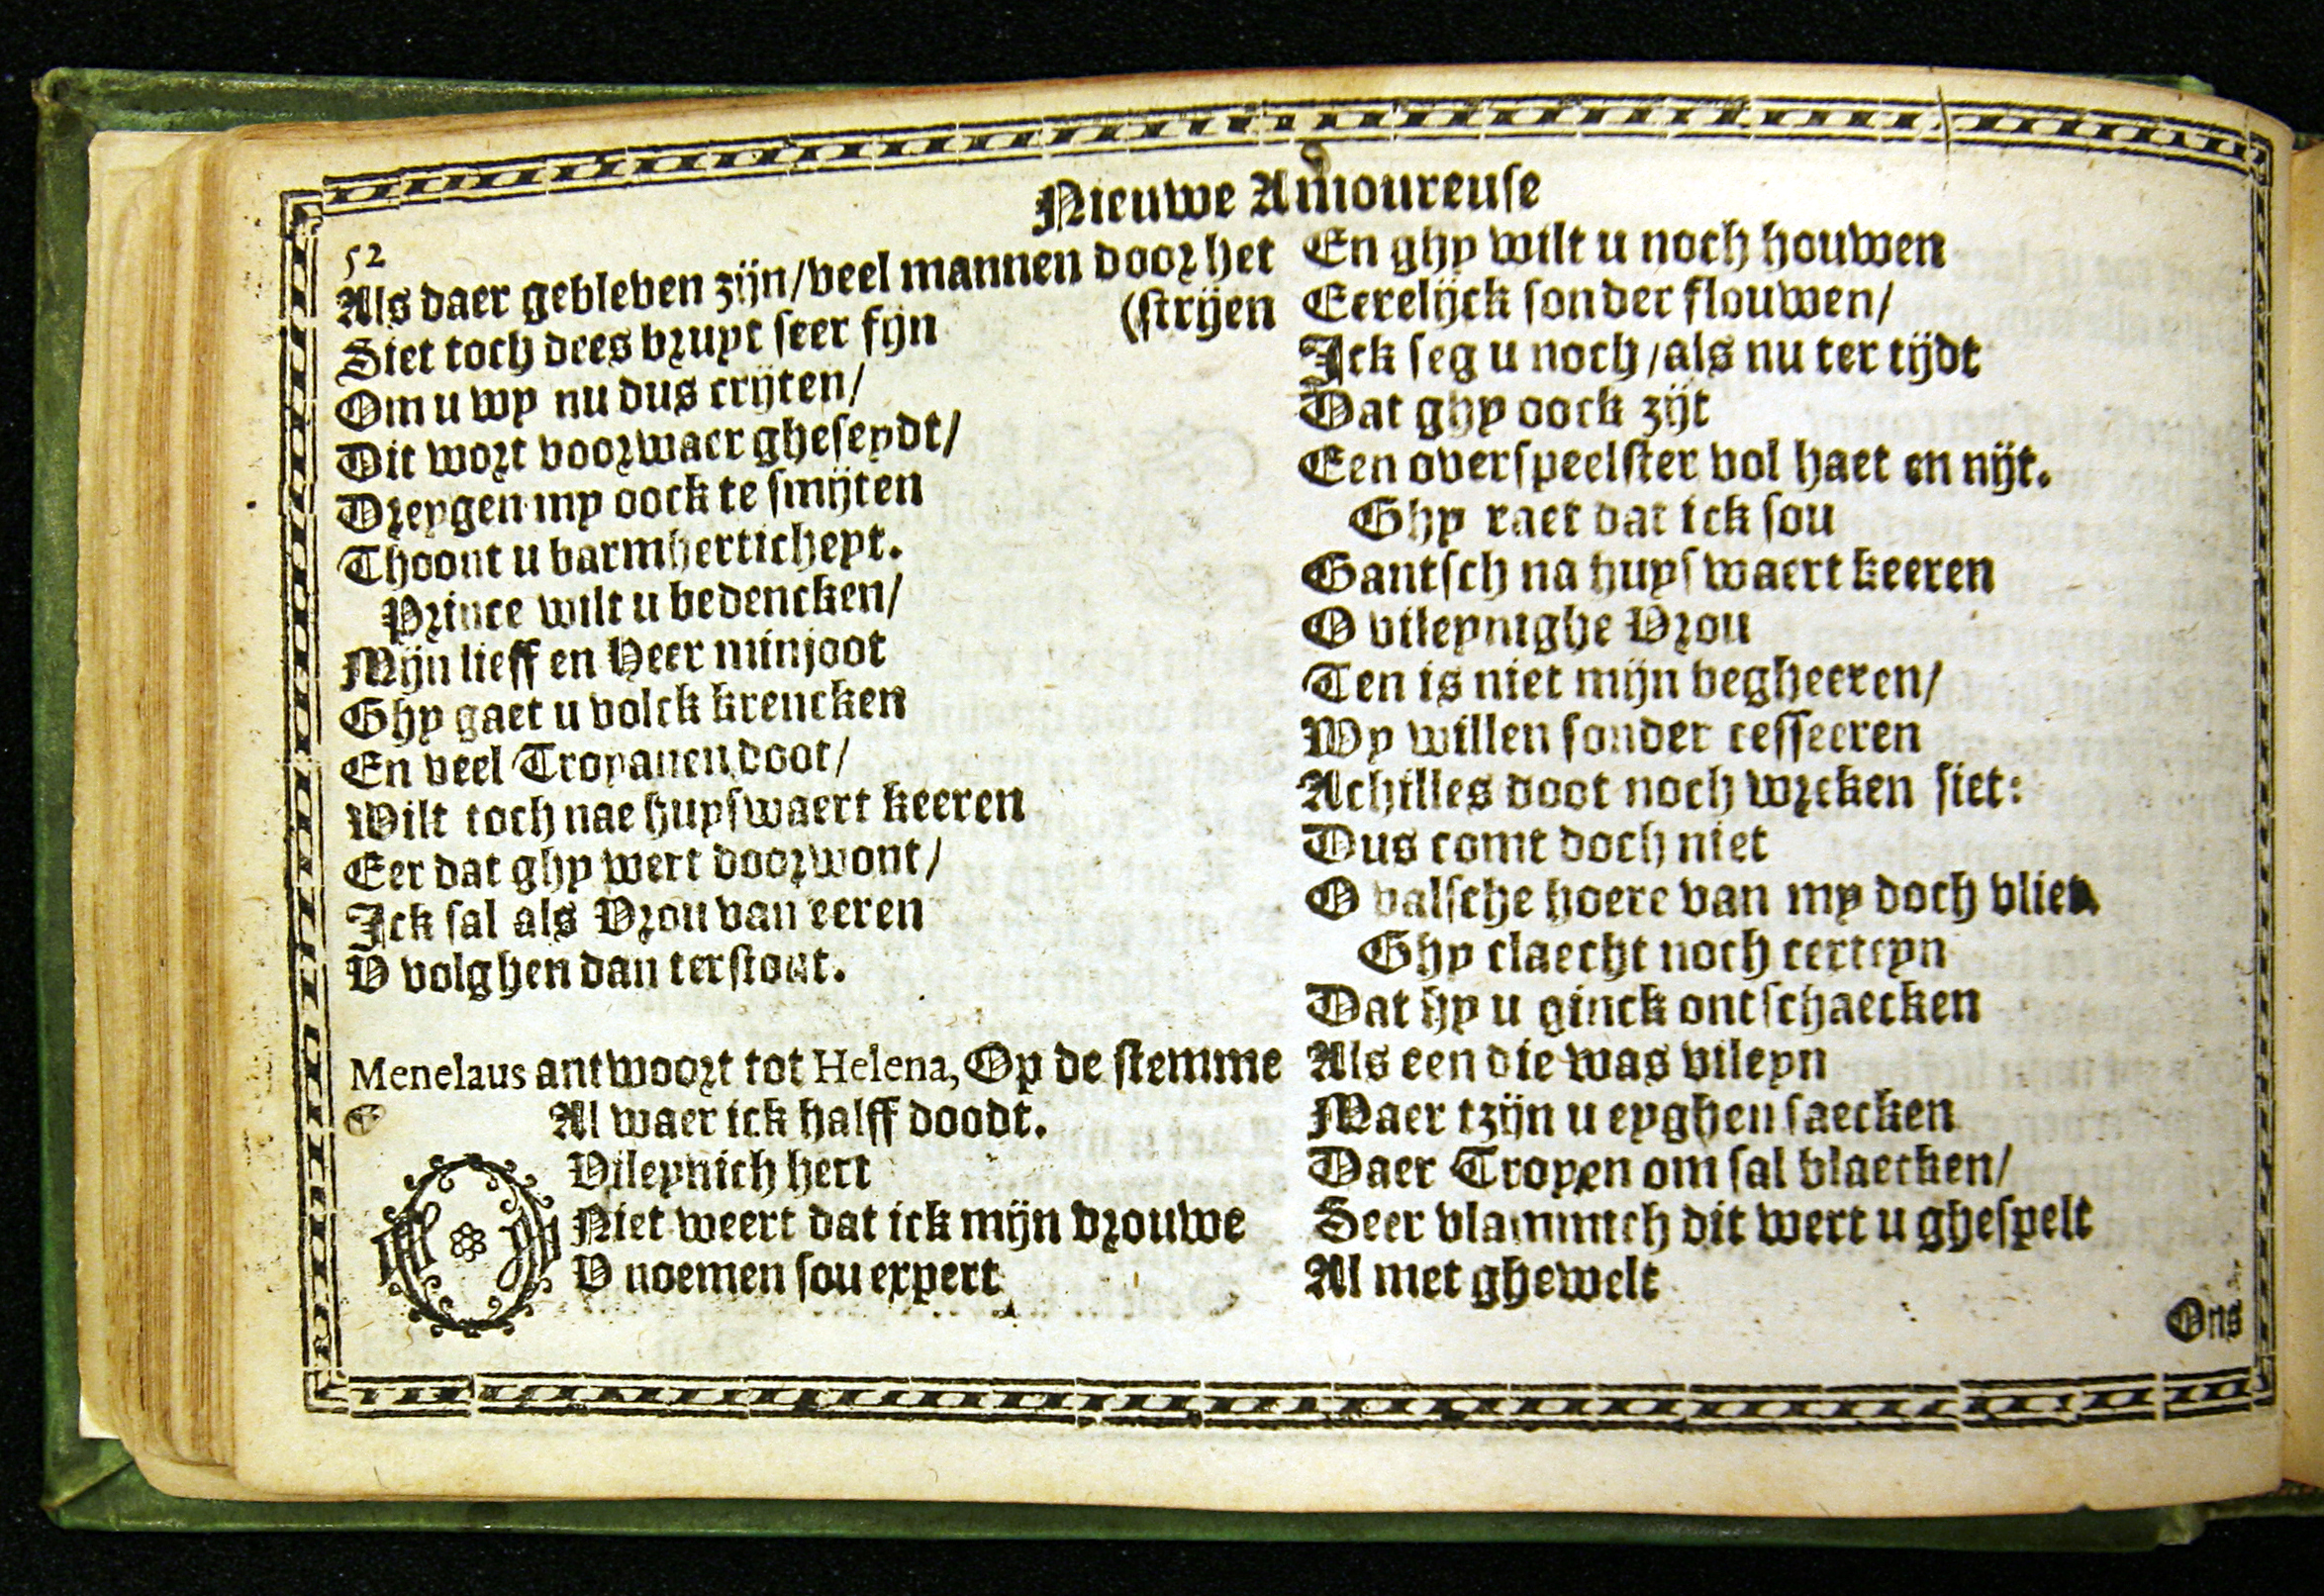 Nieuwe Amoureuse
52
Als daer gebleven zijn/veel mannen door het
(strijen
Siet toch dees bruyt seer fijn
Om u wy nu dus crijten/
Dit wort voorwaer gheseydt/
Dreygen my oock te smijten
Thoont u barmherticheyt.
Prince wilt u bedencken/
Mijn lieff en Heer minjoot
Ghy gaet u volck krencken
En veel Troyanen doot/
Wilt toch nae huyswaert keeren
Eer dat ghy wert doorwont/
Ick sal als Vrou van eeren
V volghen dan terstont.
Menelaus antwoort tot Helena, Op de stemme
Al waer ick halff doodt.
O Vileynich hert
Niet weert dat ick mijn vrouwe
V noemen sou expert
En ghy wilt u noch houwen
Eerelijck sonder flouwen/
Ick seg u noch/als nu ter tijdt
Dat ghy oock zijt
Een overspeelster vol haet en nijt.
Ghy raet dat ick sou
Gantsch na huys waert keeren
O vileynighe Vrou
Ten is niet mijn begheeren/
Wy willen sonder cesseeren
Achilles doot noch wreken siet:
Dus comt doch niet
O valsche hoere van my doch vliet
Ghy claecht noch certeyn
Dat hy u ginck ontschaecken
Als een die was vileyn
Maer tzijn u eyghen saecken
Daer Troyen om sal blaecken/
Seer vlammich dit wert u ghespelt
Al met ghewelt
Ons